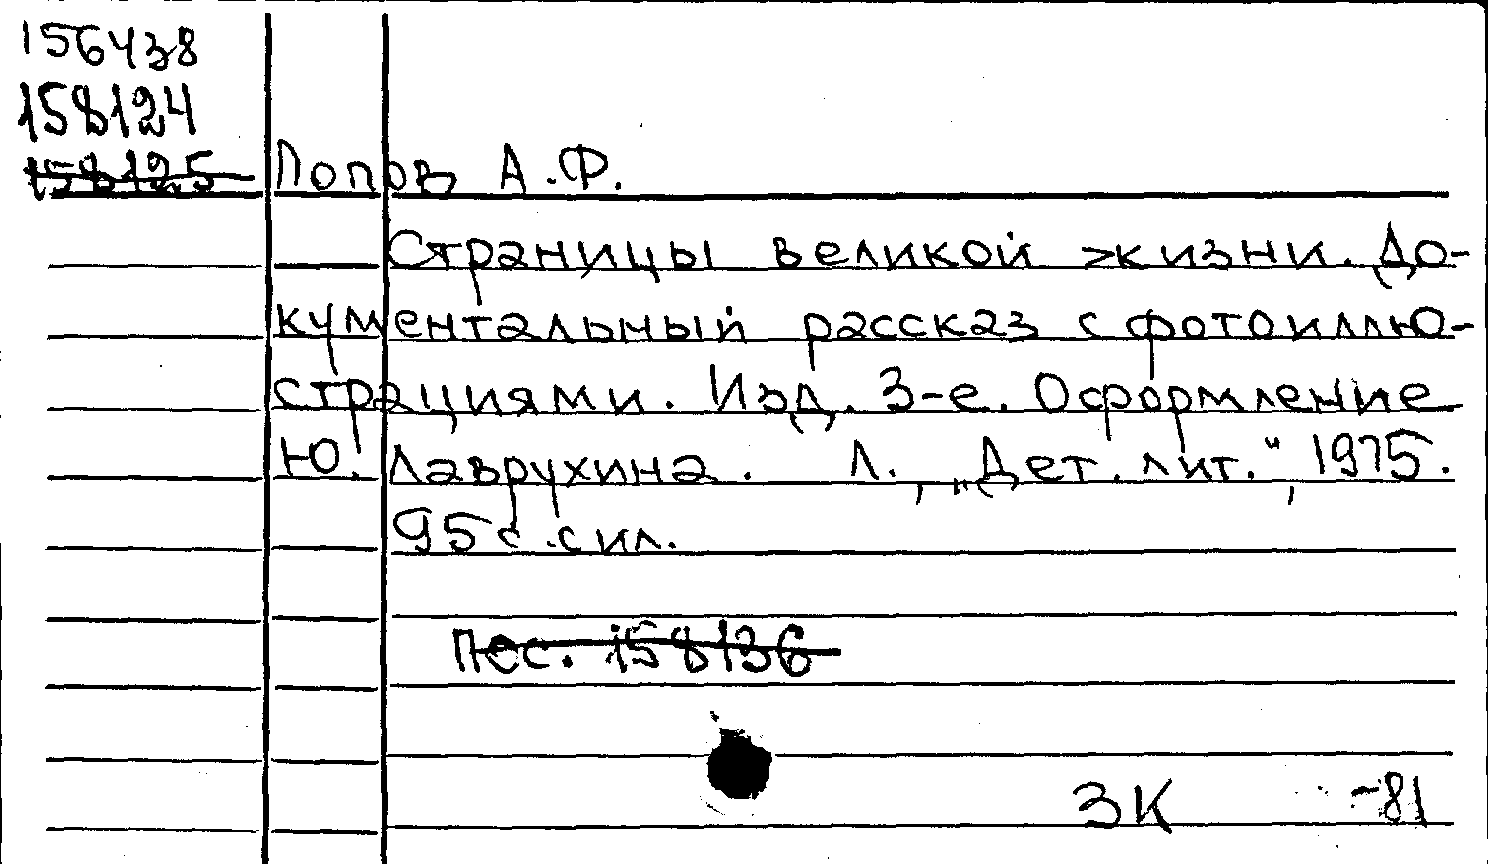 156438
158124
158125
Попов А.Ф.
Страницы великой жизни. До-
кументальный рассказ с фотоиллю-
страциями. Изд. 3-е. Оформление
Ю. Лаврухина. Л., „Дет. лит.“, 1975.
95 с. с ил.
Пес. 158136
ЗК -81